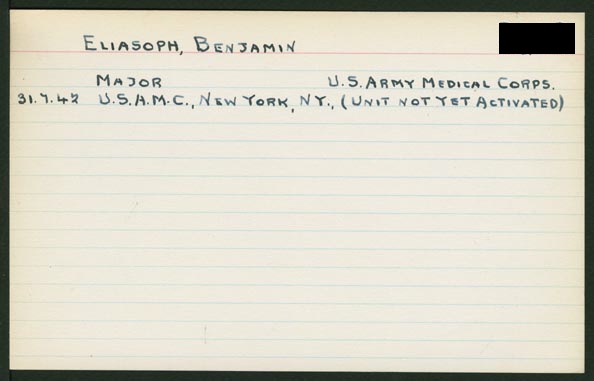 ELIASOPH, BENJAMIN
MAJOR U.S. ARMY MEDICAL CORPS.
31.7.42 U.S.A.M.C., NEW YORK, NY., (UNIT NOT YET ACTIVATED)